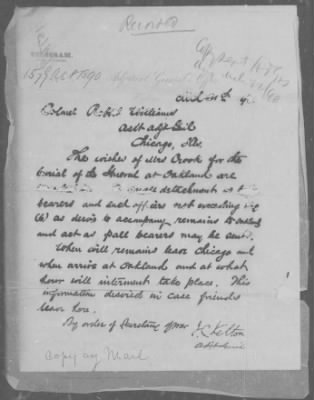 Record
TELEGRAM.
1579 ACP 1890
Colonel Robt Williams
Asst Adjt Genl
Chicago, Ills.
The wishes of Mrs Crook for the
burial of the General at Oakland are
detachment
bearers and such officers not exceeding six
(6) as desire to accompany remains to Oakland
and act as pall bearers may be sent.
When will remains leave Chicago and
when arrive at Oakland and at what
hour will interment take place. This
information desired in case friends
leave here.
By order of Secretary of War
J. C. Kelton
Copy by Mail